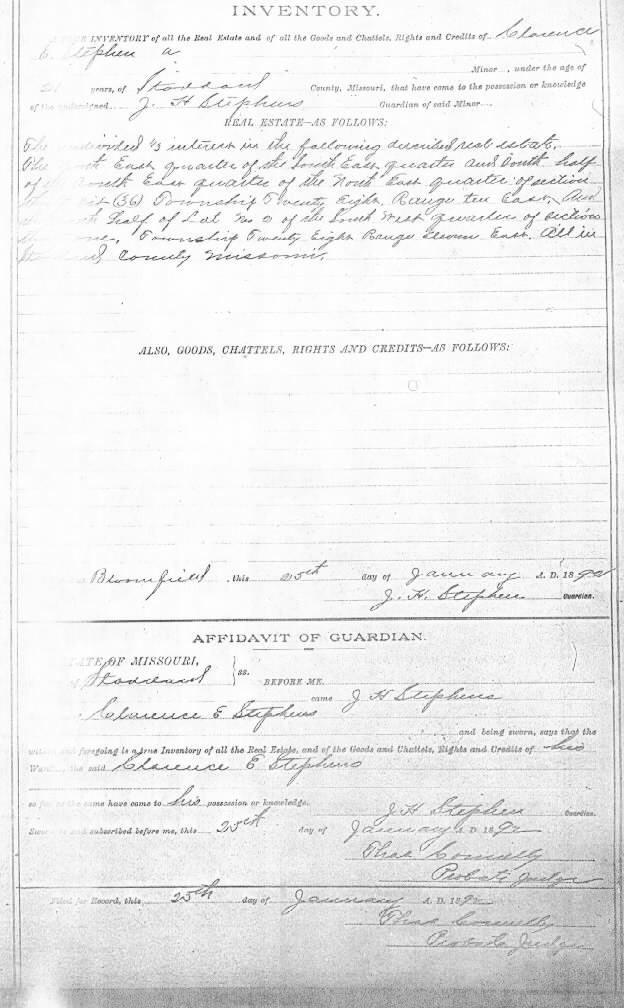 INVENTORY.
INVENTORY of all the Real Estate and of all the Goods and Chattels, Rights and Credits of Clarence
E. Stephen a
Minor , under the age of
21 years, of Stoddard County, Missouri, that have come to the possession or knowledge
of the undersigned J. H Stephens Guardian of said Minor
REAL ESTATE—AS FOLLOWS:
The undivided 1/3 interest in the following described real estate.
The East quarter of the South East quarter and South half
of South East quarter of the North East quarter of section
(36) Township Twenty Eight, Range ten East, And
half of Lot No 2 of the South West quarter of section
Township Twenty Eight Range Eleven East. All in
County Missouri.
ALSO, GOODS, CHATTELS, RIGHTS AND CREDITS—AS FOLLOWS:
Bloomfield , this 25th day of January A. D. 1892
J. H. Stephens Guardian.
AFFIDAVIT OF GUARDIAN.
STATE OF MISSOURI,
Stoddard } ss. BEFORE ME,
came J H Stephens
Clarence E Stephens
and being sworn, says that the
within and foregoing is a true Inventory of all the Real Estate, and of the Goods and Chattels, Rights and Credits of his
Ward , the said Clarence E Stephens
so far as the same have come to his possession or knowledge.
J. H Stephen Guardian.
Sworn to and subscribed before me, this 25th day of January A. D. 1892
Thad Connelly
Probate Judge
Filed for Record, this 25th day of January A. D. 1892
Thad Connelly
Probate Judge